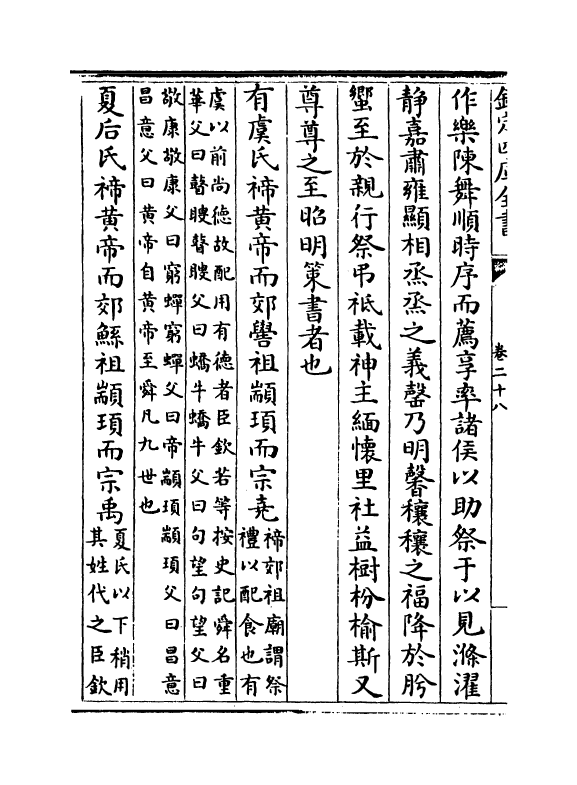 欽定四庫全書
卷二十八
作樂陳舞順時序而薦享率諸侯以助祭于以見滌濯
静嘉肅雍顯相烝烝之義罄乃明馨穰穰之福降於肸
蠁至於親行祭弔祗載神主緬懷里社益樹枌榆斯又
尊尊之至昭明策書者也
有虞氏禘黄帝而郊嚳祖顓頊而宗堯禘郊祖廟謂祭
禮以配食也有
虞以前尚德故配用有德者臣欽若等按史記舜名重
華父曰瞽瞍瞽瞍父曰蟜牛蟜牛父曰句望句望父曰
敬康敬康父曰窮蟬窮蟬父曰帝顓頊顓頊父曰昌意
昌意父曰黄帝自黄帝至舜凡九世也
夏后氏禘黄帝而郊鯀祖顓頊而宗禹夏氏以下稍用
其姓代之臣欽